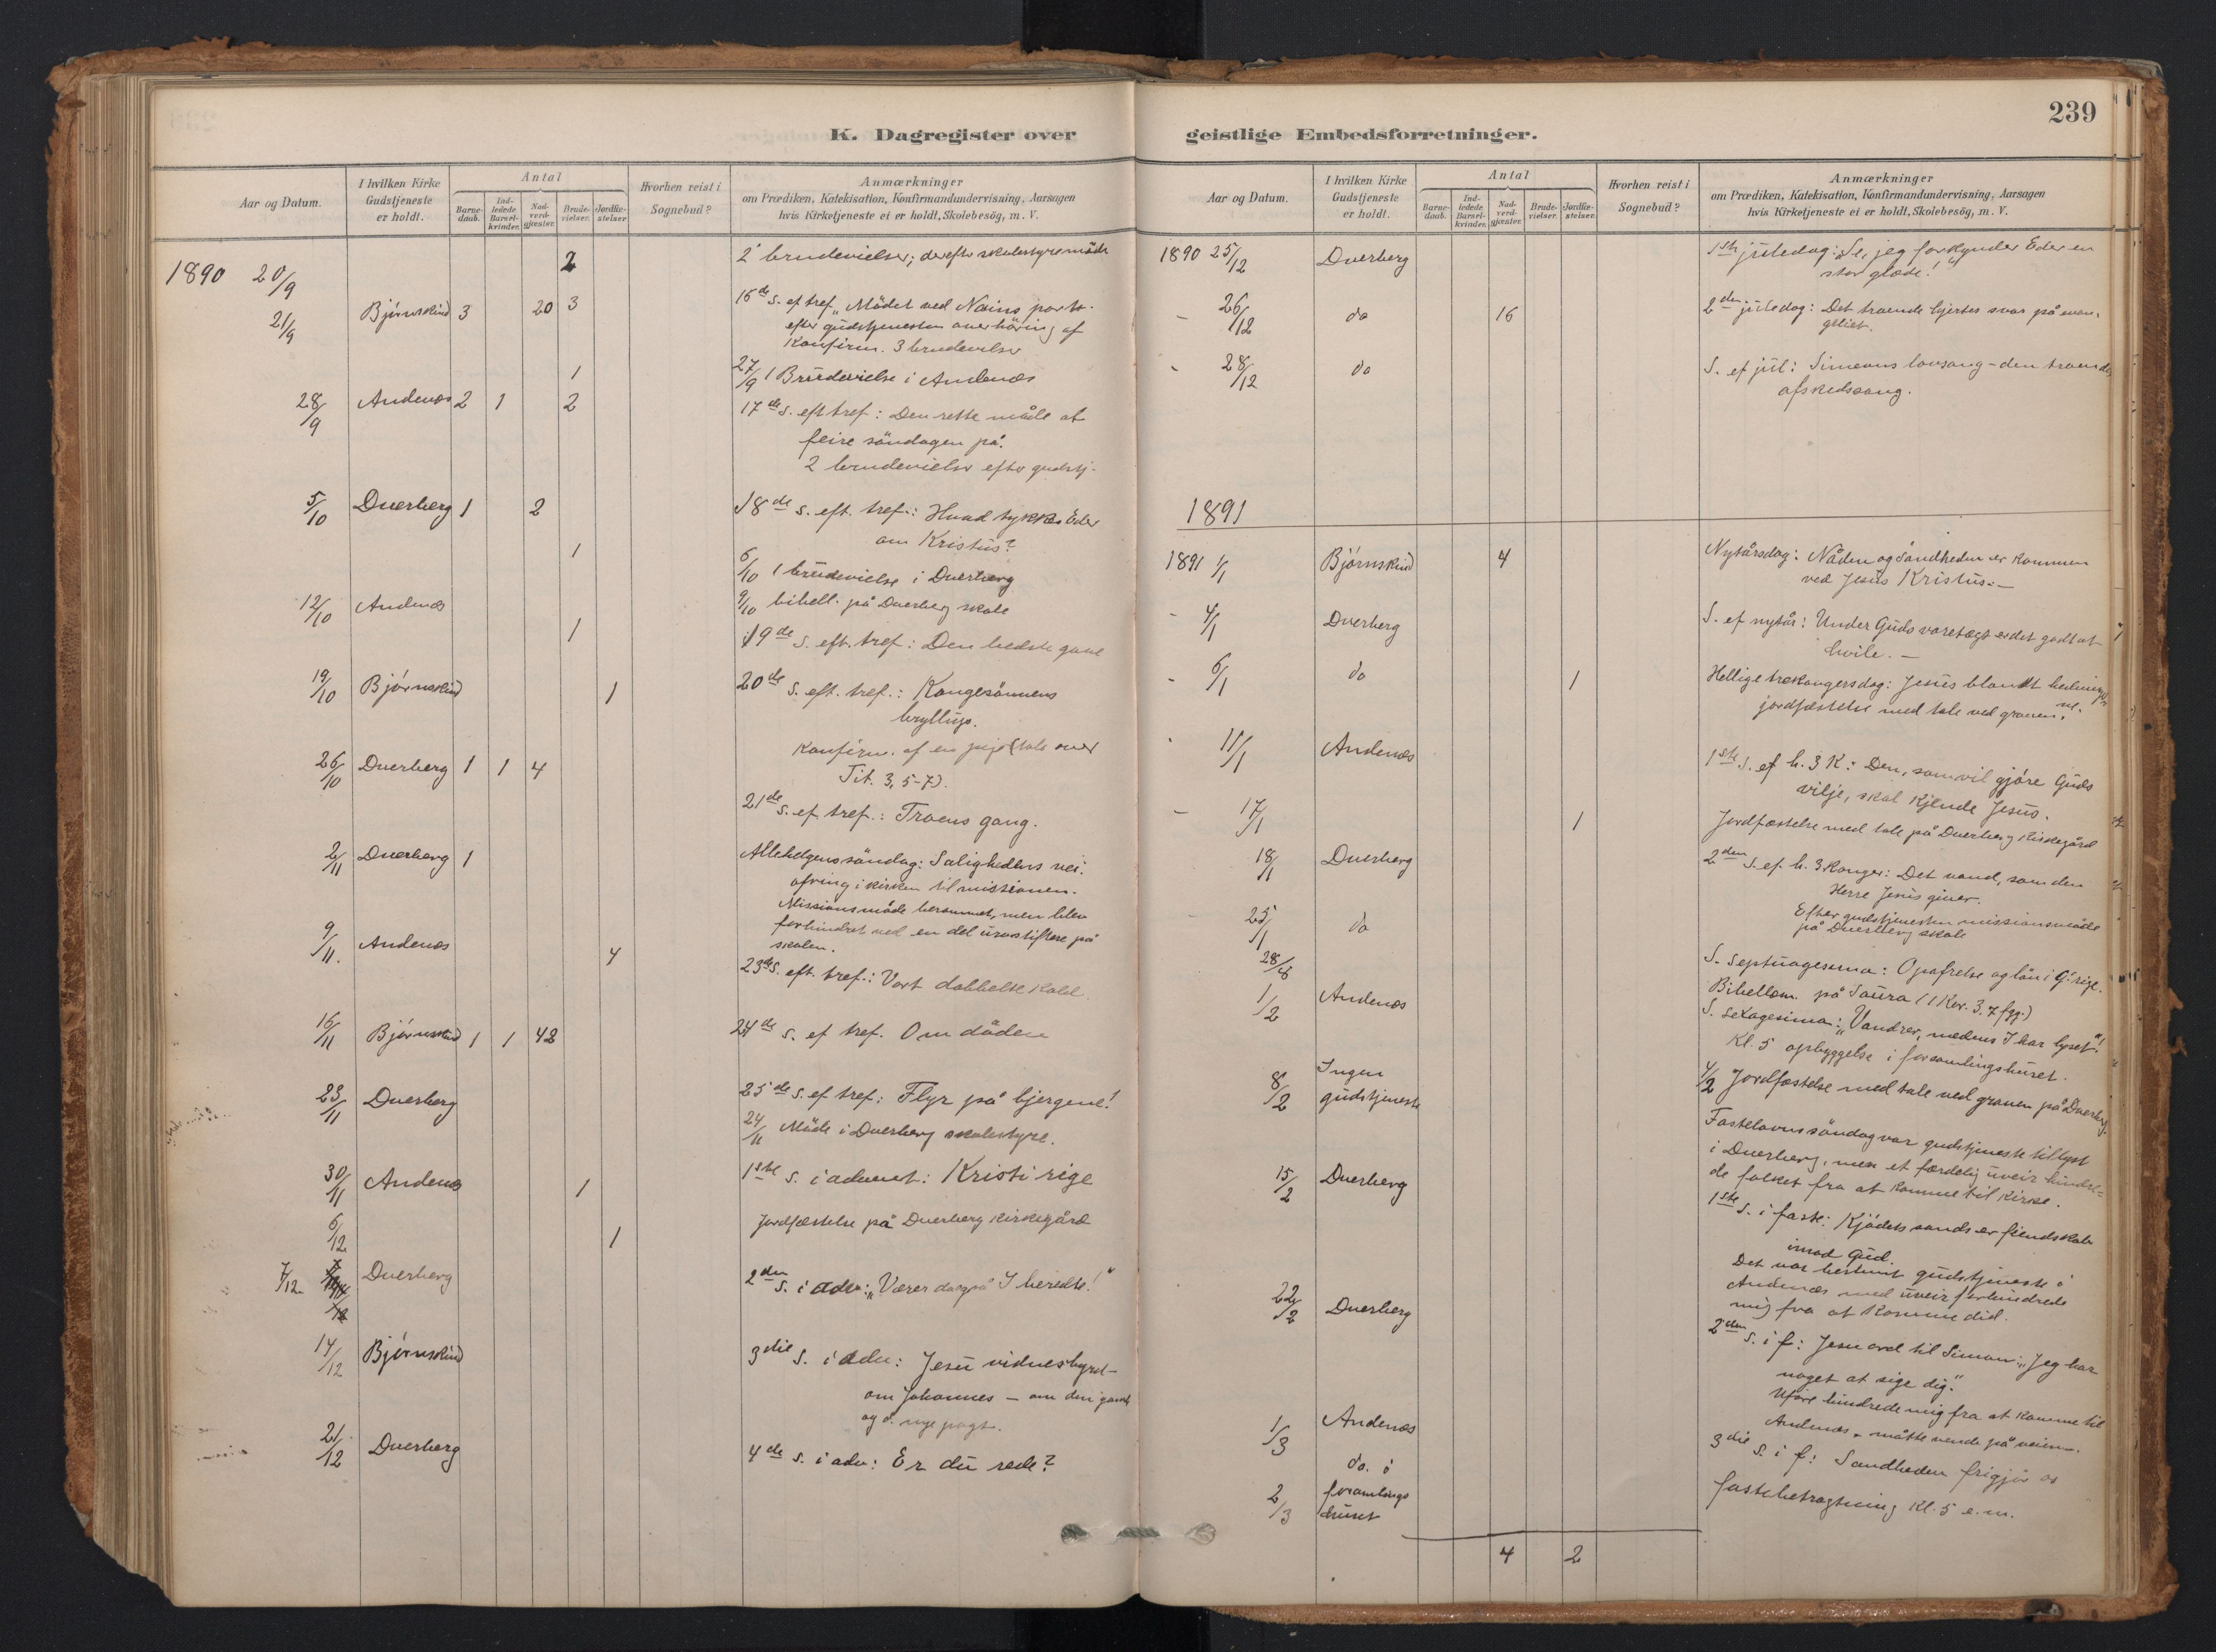 K. Dagregister over
Aar og Datum. I hvilken Kirke Gudstjeneste er holdt. Antal Barne-daab. Ind-ledede Barsel-kvinder. Nad-verd-gjæster. Brude-vielser. Jordfæ-stelser. Hvorhen reist i Sognebud? Anmærkninger om Prædiken, Katekisation, Konfirmandundervisning, Aarsagen hvis Kirketjeneste ei er holdt, Skolebesög, m. V.
1890 20/9 2 2 brudevielser; derefter skolestyremöde
21/9 Bjørnskind 3 20 3 16de s. ef tref. „Mödet ved Nains port.
efter gudstjenesten overhöring af
Konfirm. 3 brudevielser
1 27/9 1 Brudevielse i Andenæs
28/9 Andenæs 2 1 2 17de s. eft tref: Den rette måde at
feire söndagen på.
2 brudevielser efter gudstj.
5/10 Dverberg 1 2 18de s. eft. tref.: Hvad tykkes Eder
om Kristus?
1 6/10 1 brudevielse i Dverberg
9/10 bibell. på Dverberg skole
12/10 Andenæs 1 19de s. eft. tref: Den bedste gave
19/10 Bjørnskind 1 20de s. eft. tref.: Kongesönnens
bryllup.
Konfirm. af en pige (tale over
Tit. 3, 5-7).
26/10 Dverberg 1 1 4
21de s. ef. tref.: Troens gang.
2/11 Dverberg 1 Allehelgens söndag: Salighedens vei.
ofring i kirken til missionen.
Missionsmöde berammet, men blev
forhindret ved en del urostiftere på
skolen.
9/11. Andenæs 4 23de s. eft. tref.: Vort dobbelte kald.
16/11 Bjørnskind 1 1 42 24de s. ef tref. Om döden
23/11 Dverberg 25de s. ef tref: Flyr på bjergene!
24/11 Möde i Dverberg skolestyre.
30/11 Andenæs 1 1ste s. i advent: Kristi rige
6/12 1 Jordfæstelse på Dverberg kirkegård
7/12 Dverberg 2den s. i adv: „Værer dog på I beredte!"
14/12 Bjørnskind 3die s. i adv: Jesu vidnesbyrd
om Johannes – om den gamle
og d. nye pagt.
21/12 Dverberg 4de s. i adv: Er du rede?
239
geistlige Embedsforretninger.
Aar og Datum. I hvilken Kirke Gudstjeneste er holdt. Antal Barne-daab. Ind-ledede Barsel-kvinder. Nad-verd-gjæster. Brude-vielser. Jordfæ-stelser. Hvorhen reist i Sognebud? Anmærkninger om Prædiken, Katekisation, Konfirmandundervisning, Aarsagen hvis Kirketjeneste ei er holdt, Skolebesög, m. V.
1890 25/12 Dverberg 1ste juledag: „Se, jeg forkynder Eder en
stor glæde!"
- 26/12 do 16 2den juledag: Det troende hjertes svar på evan-
geliet.
- 28/12 do S. ef jul: Simeons lovsang – den troendes
afskedssang.
1891
1891 1/1 Bjørnskind 4 Nytårsdag: Nåden og Sandheden er kommen
ved Jesus Kristus. –
- 4/1 Dverberg S. ef nytår: Under Guds varetægt er det godt at
hvile. –
- 6/1 do 1 Hellige trekongersdag: Jesus blandt hedninge-
ne.
jordfæstelse med tale ved graven.
- 11/1 Andenæs 1ste s. ef h. 3 K: Den, som vil gjöre Guds
vilje, skal kjende Jesus.
- 17/1 1 Jordfæstelse med tale på Dverberg kirkegård
18/1 Dverberg 2den s. ef. h. 3 Konger: Det vand, som den
Herre Jesus giver.
Efter gudstjenesten missionsmöde
på Dverberg skole
25/1 do S. Septuagesima: Opofrelse og lön i G. rige.
28/1 Bibellæsn. på Saura (1 Kor. 3. 7 fgg.)
1/2 Andenæs S. Sexagesima: „Vandrer, medens I har lyset"!
Kl. 5 opbyggelse i forsamlingshuset.
4/2 Jordfæstelse med tale ved graven på Dverberg.
8/2 Ingen gudstjeneste Fastelavnssöndag var gudstjeneste tillyst
i Dverberg, men et færdelig uveir hindre-
de folket fra at komme til kirke.
15/2 Dverberg 1ste s. i faste: Kjödets sands er fiendskab
imod Gud.
Det var bestemt gudstjeneste i
Andenæs med uveir forhindrede
mig fra at komme did.
22/2 Dverberg 2den s. i f: Jesu ord til Simon: „Jeg har
noget at sige dig."
Uföre hindrede mig fra at komme til
Andenæs – måtte vende på veien.
1/3 Andenæs 3die s. i f: Sandheden frigjör os
2/3 do. i forsamlings huset fastebetragtning kl. 5 e. m.
4 2